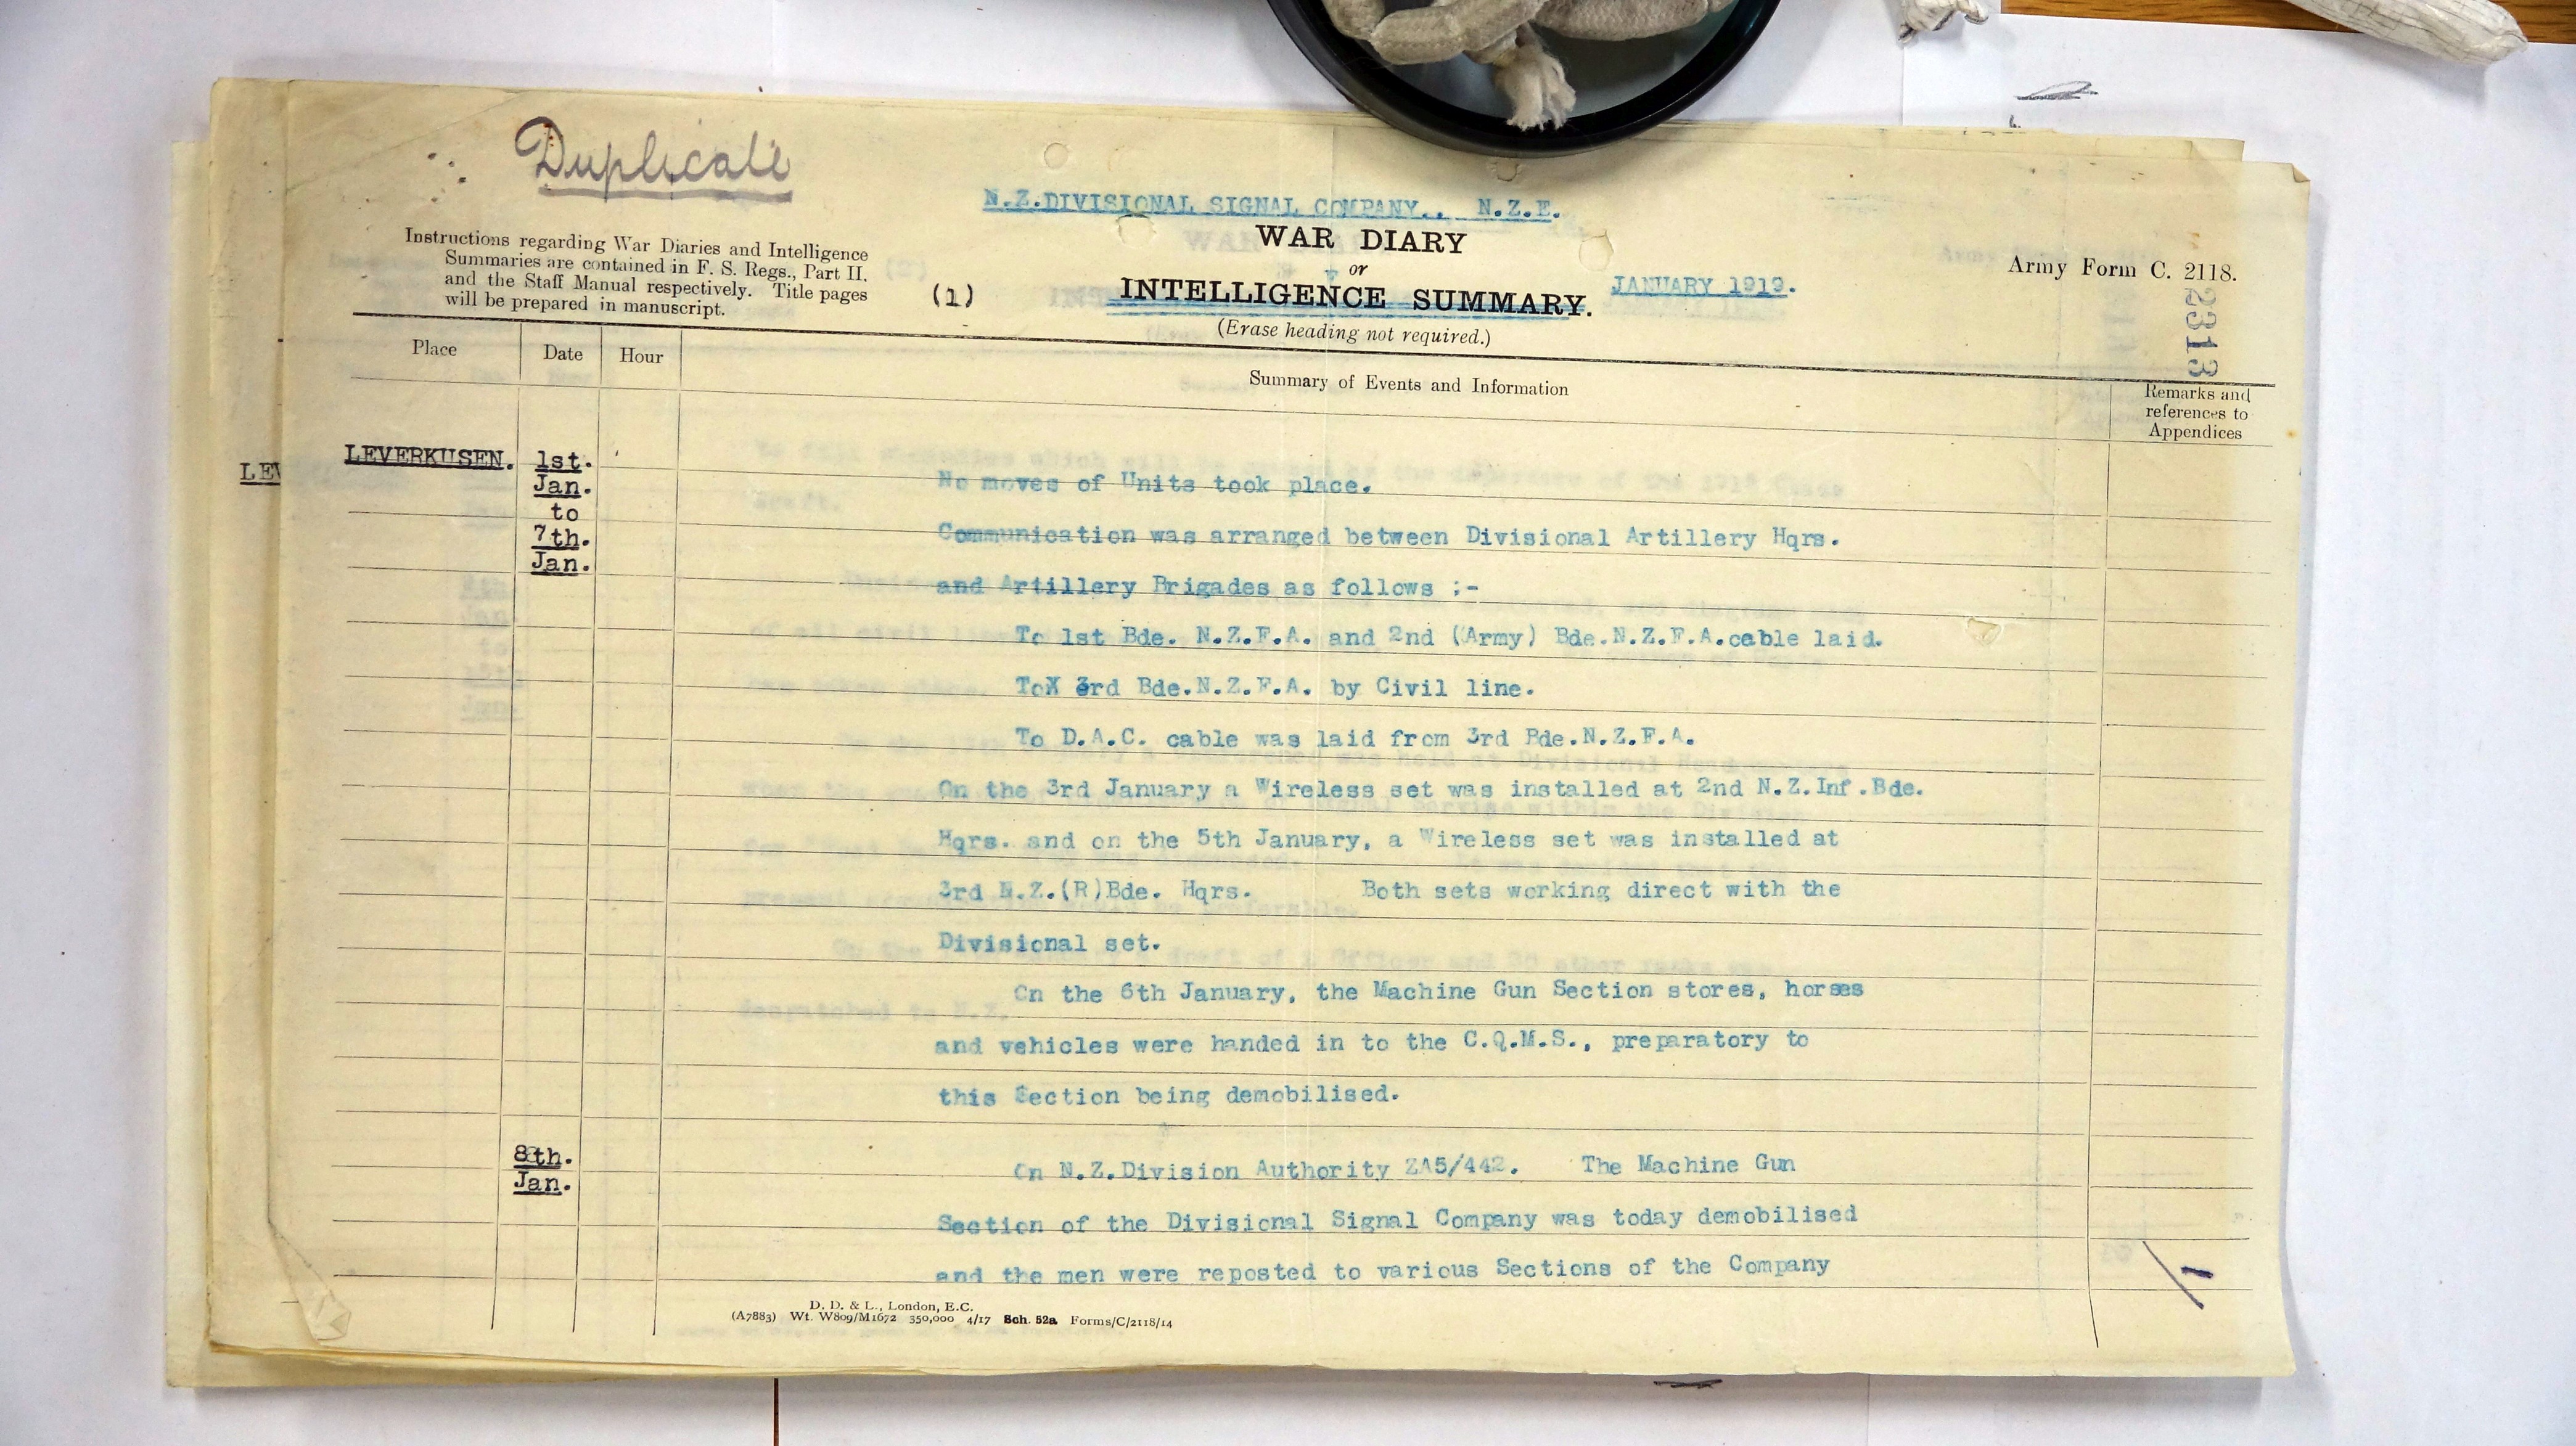 Duplicate
N.Z.DIVISIONAL SIGNAL COMPANY., N.Z.E.
Instructions regarding War Diaries and Intelligence
Summaries are contained in F. S. Regs., Part II.
and the Staff Manual respectively. Title pages
will be prepared in manuscript.
(1)
WAR DIARY
or
INTELLIGENCE SUMMARY.
(Erase heading not required.)
JANUARY 1919.
Army Form C. 2118.
2313
Place
Date
Hour
Summary of Events and Information
Remarks and
references to
Appendices
LEV
LEVERKUSEN.
1st.
Jan.
to
7th.
Jan.
No moves of Units took place.
Communication was arranged between Divisional Artillery Hqrs.
and Artillery Brigades as follows ;-
To 1st Bde. N.Z.F.A. and 2nd (Army) Bde.N.Z.F.A.cable laid.
ToX 3rd Bde.N.Z.F.A. by Civil line.
To D.A.C. cable was laid from 3rd Bde.N.Z.F.A.
On the 3rd January a Wireless set was installed at 2nd N.Z.Inf.Bde.
Hqrs. and on the 5th January, a Wireless set was installed at
3rd N.Z.(R)Bde. Hqrs. Both sets working direct with the
Divisional set.
On the 6th January, the Machine Gun Section stores, horses
and vehicles were handed in to the C.Q.M.S., preparatory to
this Section being demobilised.
8th.
Jan.
On N.Z.Division Authority ZA5/442. The Machine Gun
Section of the Divisional Signal Company was today demobilised
and the men were reposted to various Sections of the Company
D. D. & L., London, E.C.
(A7883) Wt. W809/M1672 350,000 4/17 Sch. 52a Forms/C/2118/14